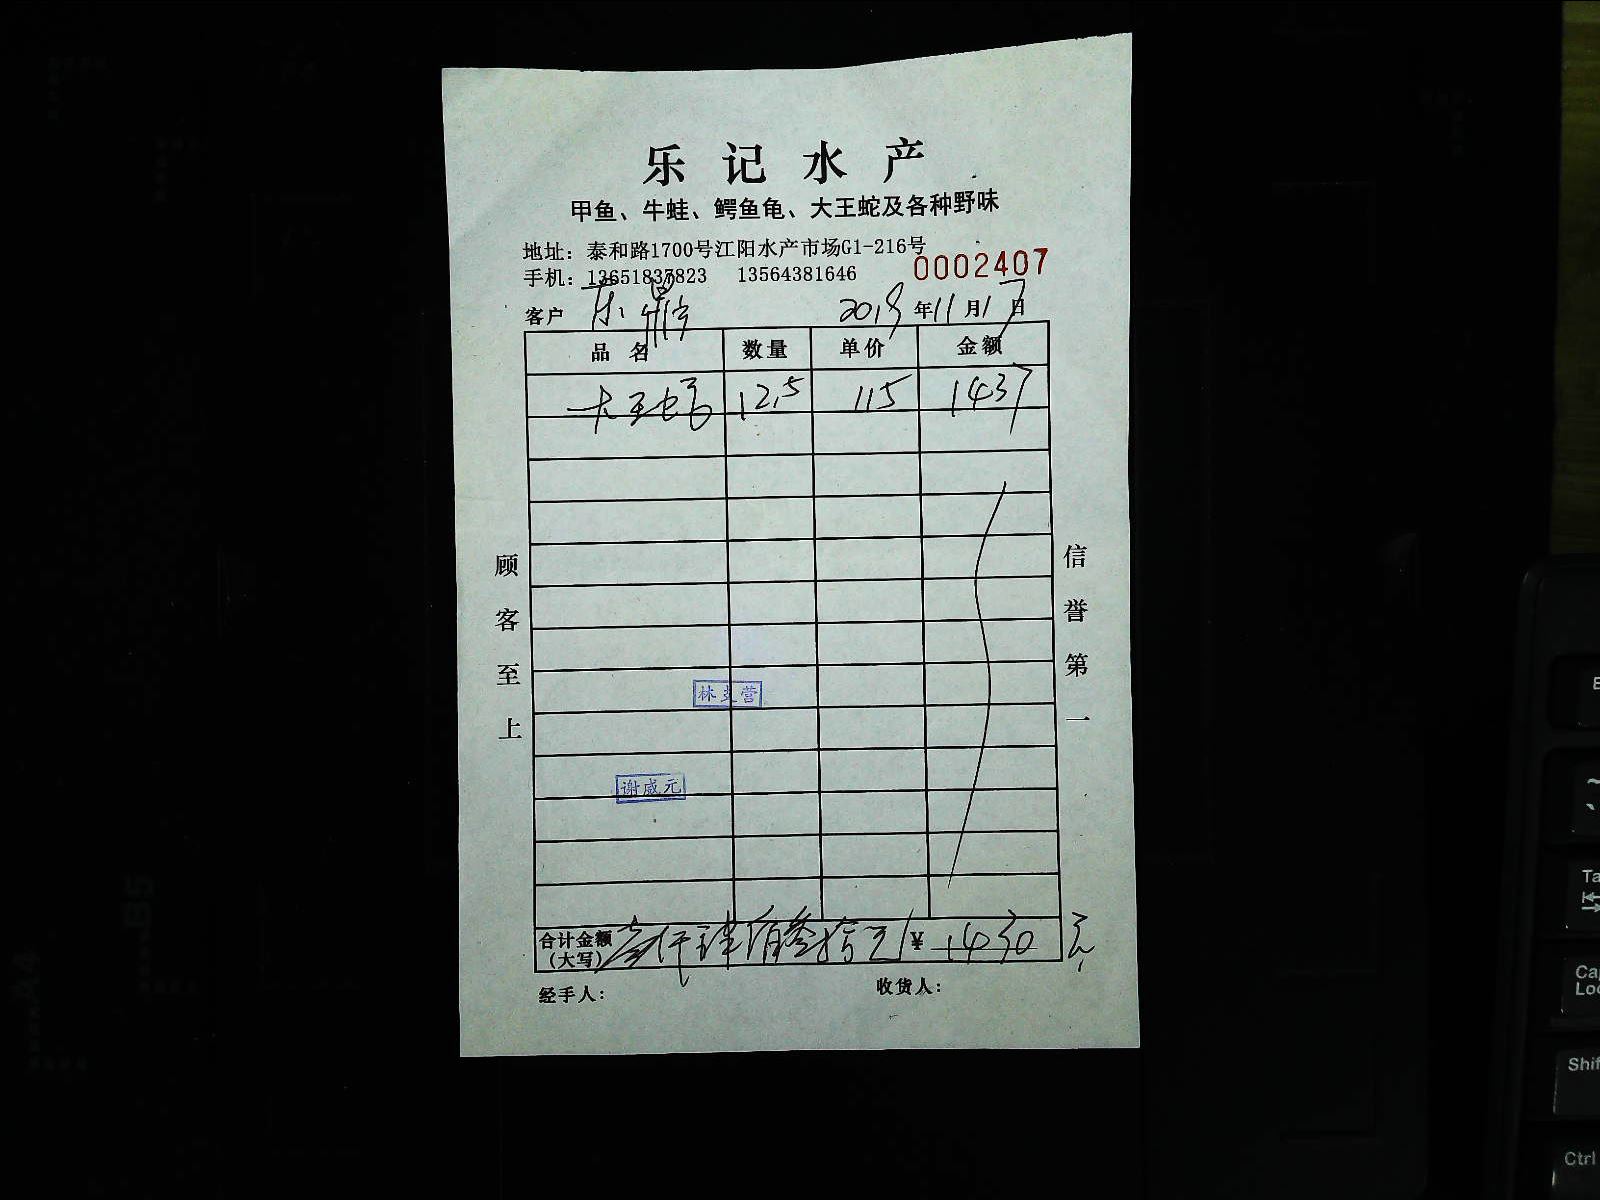 乐记水产
甲鱼、牛蛙、鳄鱼龟、大王蛇及各种野味
地址：泰和路1700号江阳水产市场G1-216号
手机：13651837823 13564381646 0002407
客户 东鼎 2019年11月17日
品名 数量 单价 金额
大王蛇 12.5 115 1437
顾客至上
信誉第一
林 营
谢威元
合计金额 壹仟肆佰叁拾元 ¥1430元
（大写）
经手人： 收货人：
B5
A4
Caps
Lock
Shift
Ctrl